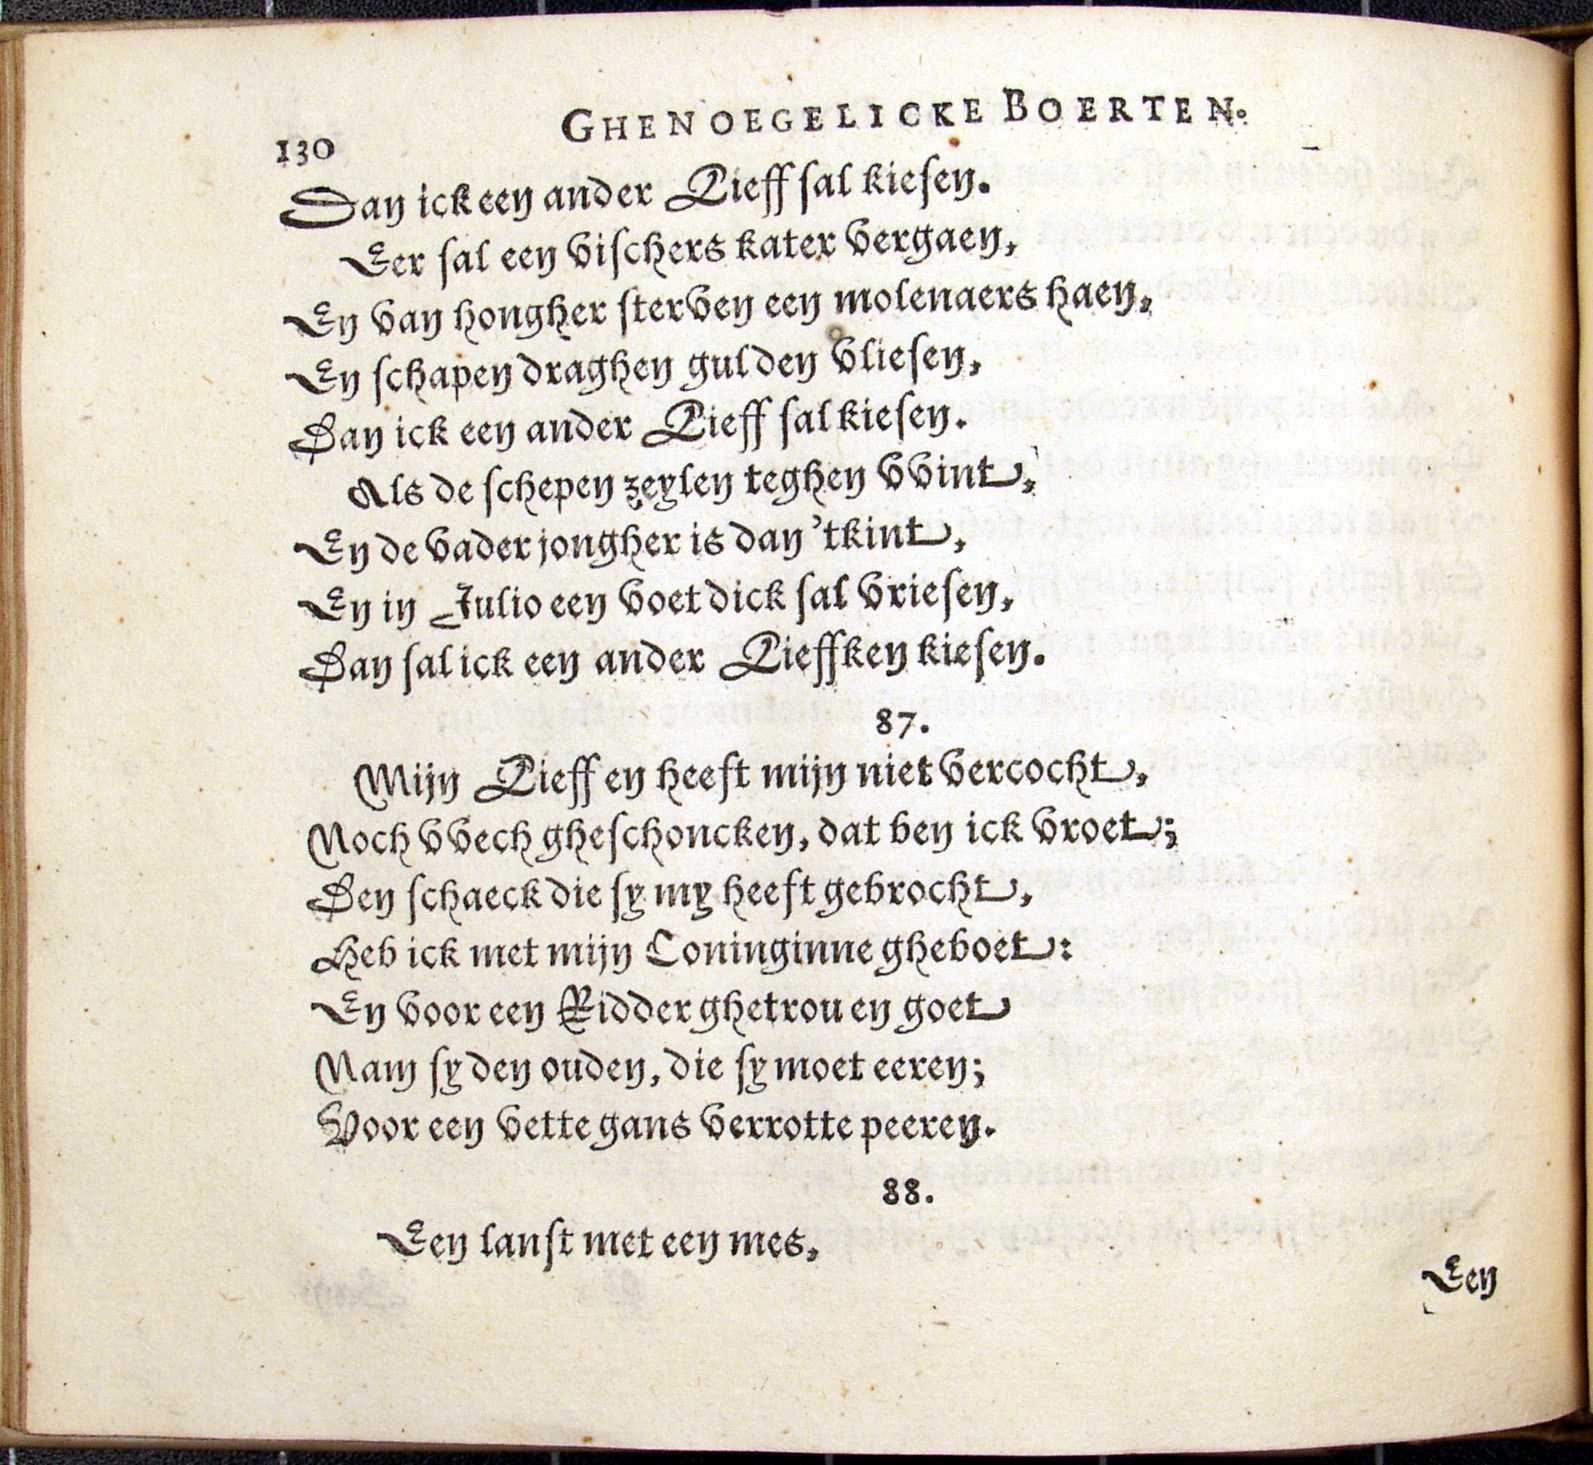 130 GHENOEGELICKE BOERTEN.
Dan ick een ander Lieff sal kiesen.
Eer sal een vischers kater vergaen,
En van hongher sterven een molenaers haen,
En schapen draghen gulden vliesen,
Dan ick een ander Lieff sal kiesen.
Als de schepen zeylen teghen vvint,
En de vader jongher is dan 'tkint,
En in Julio een voet dick sal vriesen,
Dan sal ick een ander Lieffken kiesen.
87.
Mijn Lieff en heeft mijn niet vercocht,
Noch vvech gheschoncken, dat ben ick vroet;
Den schaeck die sy my heeft gebrocht,
Heb ick met mijn Coninginne gheboet:
En voor een Ridder ghetrou en goet
Nam sy den ouden, die sy moet eeren;
Voor een vette gans verrotte peeren.
88.
Een lanst met een mes,
Een